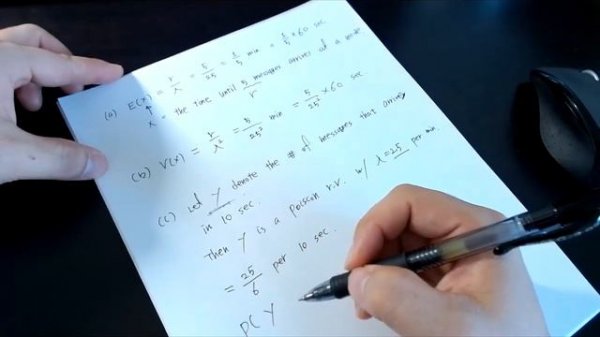 (a) E(X) = r/λ = 5/25 = 1/5 min = 1/5 × 60 sec
X = the time until 5 messages arrives at a node
r
(b) V(X) = r/λ² = 5/25² min = 5/25² × 60 sec
(c) Let Y denote the # of messages that arrives
in 10 sec.
Then Y is a poisson r.v. w/ λ=25 per min.
= 25/6 per 10 sec.
P( Y